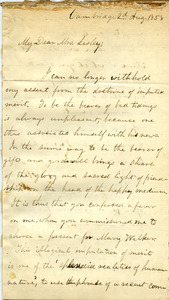 Cambridge 2d Aug. 1853
My Dear Mrs Lesley,
I can no longer withhold
my assent from the doctrine of imputed
merit. To be the bearer of bad tidings
is always unpleasant, because one
thus associated himself with his news.
In the same way to be the bearer of
gifts and good will brings a share
of the glory and sacred light of friend-
ship on the head of the happy medium.
It is thus that you conferred a favor
on me, when you commissioned me to
choose a present for Mary Walker.
This physical imputation of merit
is one of the realities of human
nature, to use the phrase of a recent com